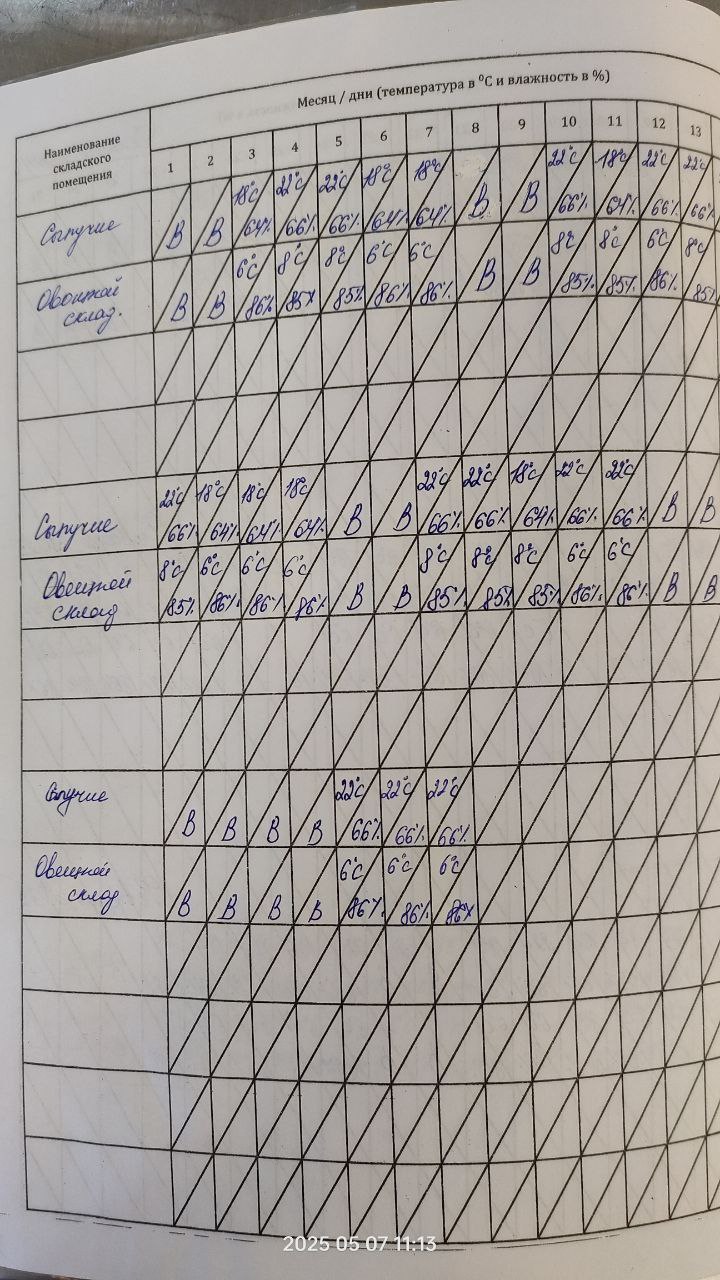 Месяц / дни (температура в ⁰С и влажность в %)
Наименование
складского
помещения
1 2 3 4 5 6 7 8 9 10 11 12 13
18°C 22°C 22°C 18°C 18°C 22°C 18°C 22°C 22°C
Сыпучие В В 64% 66% 66% 64% 64% В В 66% 64% 66% 66%
6°C 8°C 8°C 6°C 6°C 8°C 8°C 6°C 8°C
Овощной В В 86% 85% 85% 86% 86% В В 85% 85% 86% 85%
склад.
22°C 18°C 18°C 18°C 22°C 22°C 18°C 22°C 22°C
Сыпучие 66% 64% 64% 64% В В 66% 66% 64% 66% 66% В В
8°C 6°C 6°C 6°C 8°C 8°C 8°C 6°C 6°C
Овощной 85% 86% 86% 86% В В 85% 85% 85% 86% 86% В В
склад
22°C 22°C 22°C
Сыпучие В В В В 66% 66% 66%
6°C 6°C 6°C
Овощной В В В В 86% 86% 86%
склад
2025 05 07 11:13